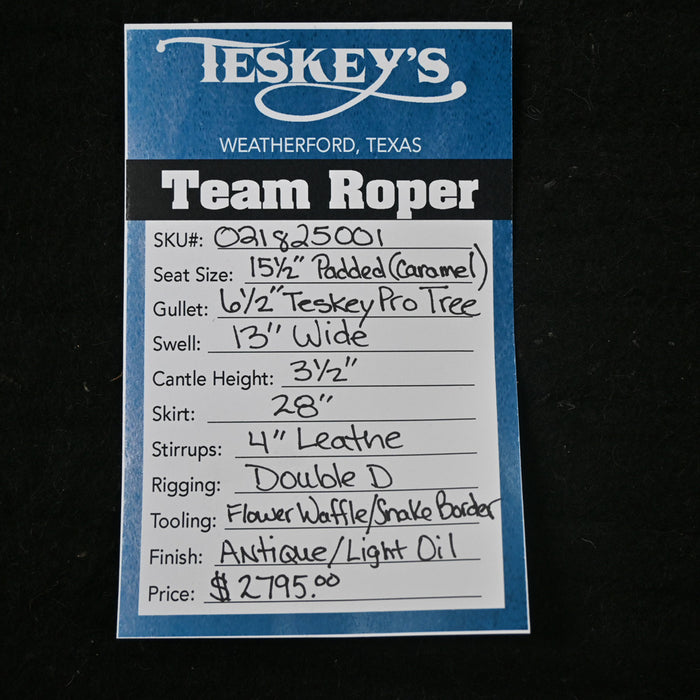 TESKEY'S
WEATHERFORD, TEXAS
Team Roper
SKU#: 021825001
Seat Size: 15½" Padded (Caramel)
Gullet: 6½" Teskey Pro Tree
Swell: 13" Wide
Cantle Height: 3½"
Skirt: 28"
Stirrups: 4" Leathe
Rigging: Double D
Tooling: Flower Waffle/Snake Border
Finish: Antique/Light Oil
Price: $2795.00